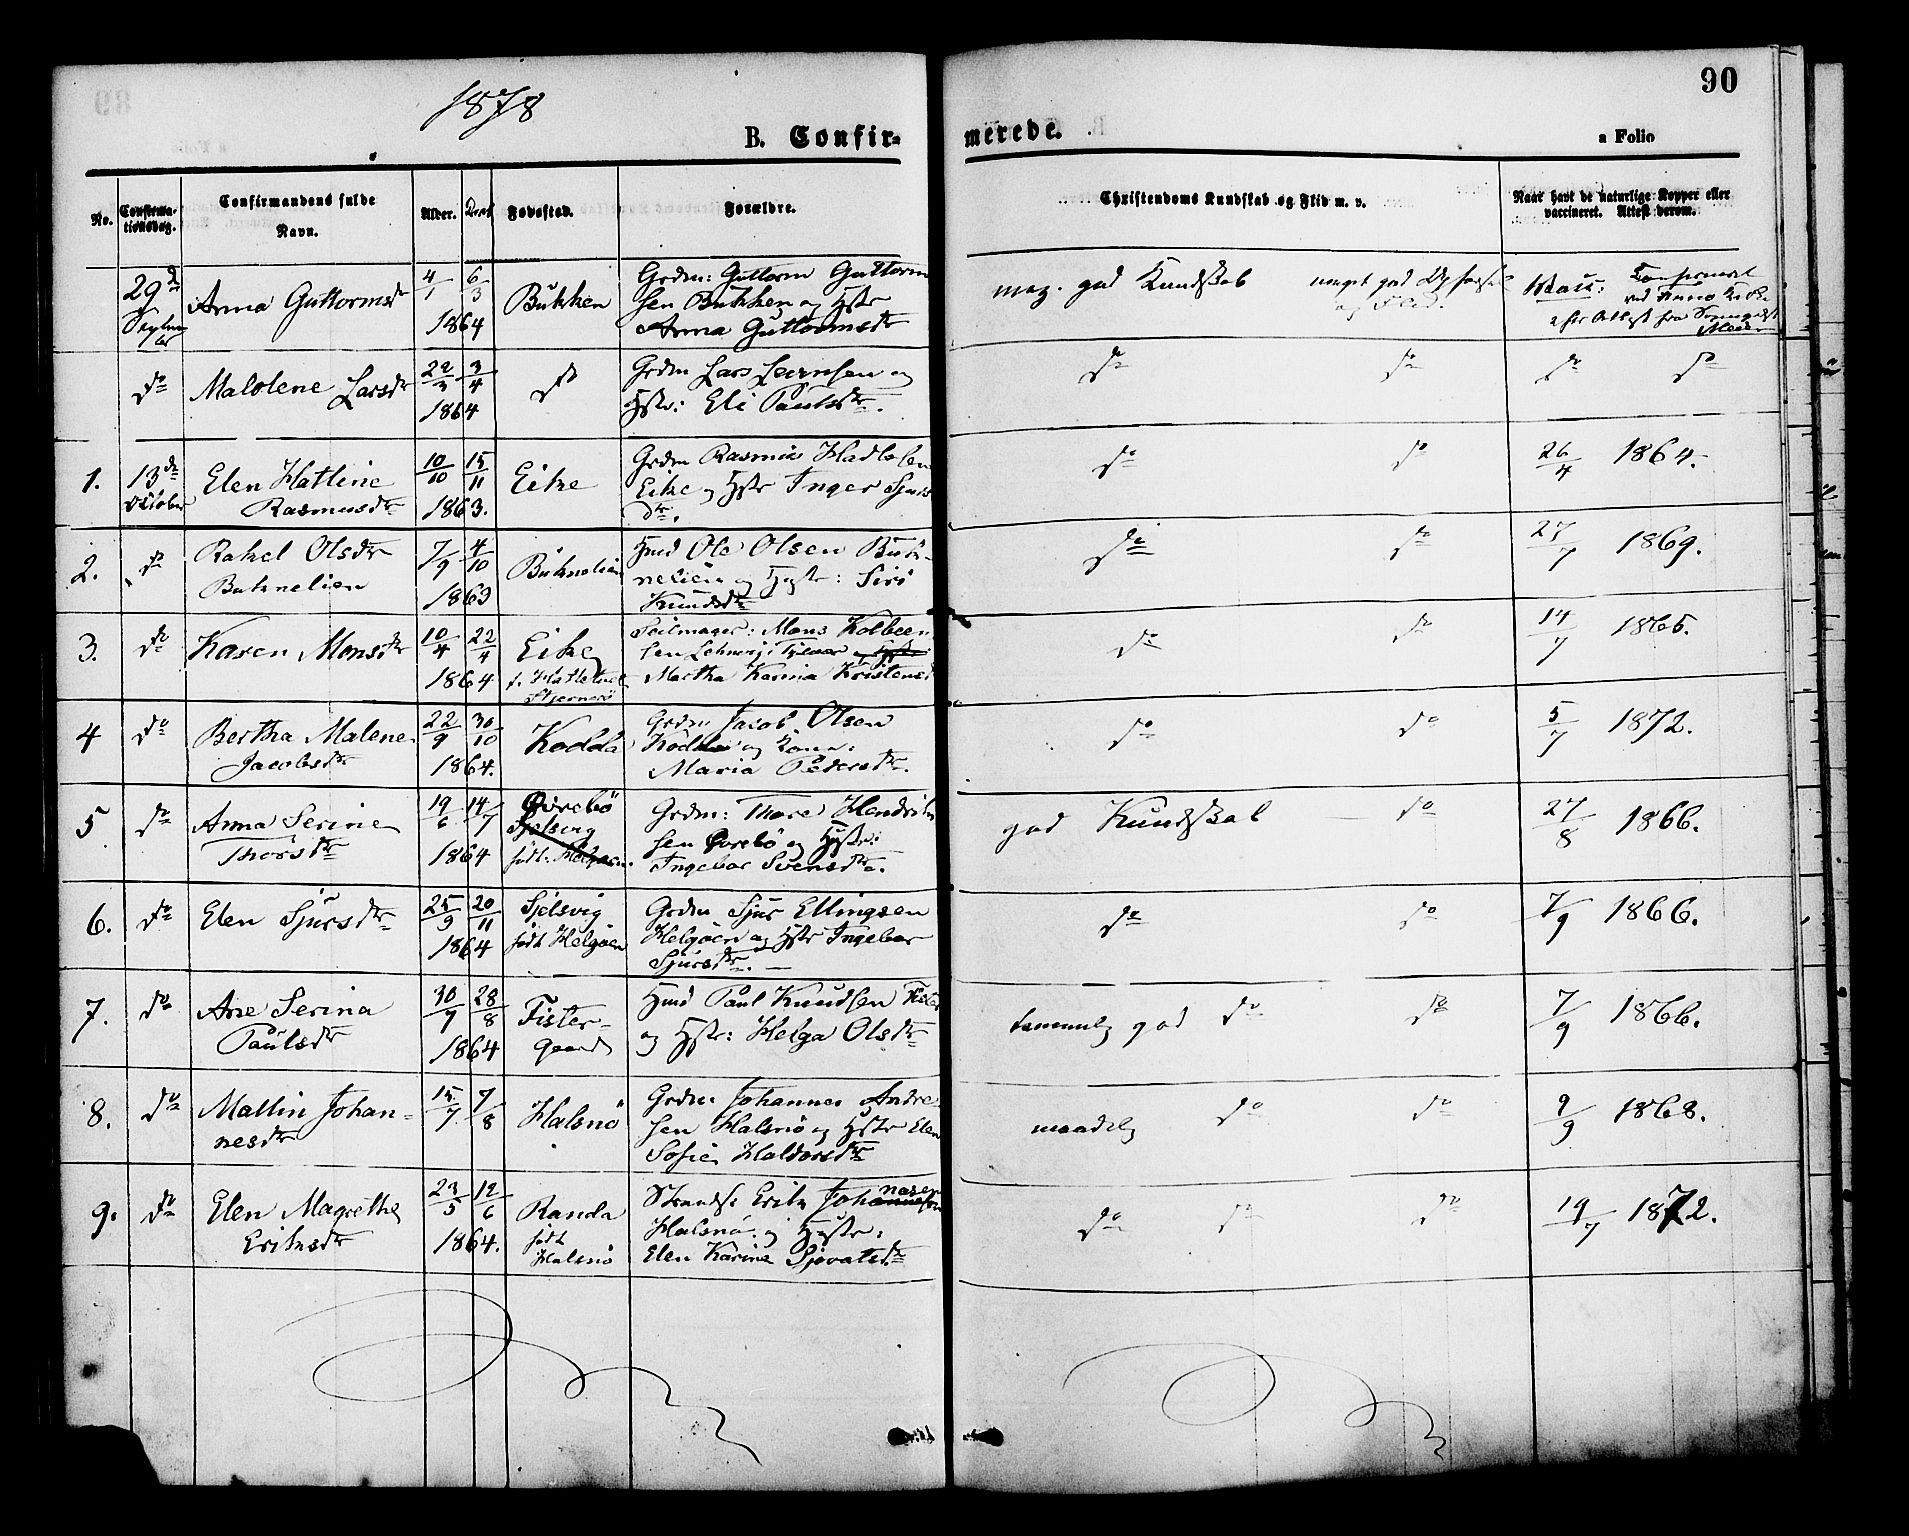 1878
90
B. Confir-
merede.
a Folio
No.
Confirma-
tionsdag.
Confirmandens fulde
Navn.
Alder.
Døbt
Fødested.
Forældre.
Christendoms Kundskab og Flid m. v.
Naar havt de naturlige Kopper eller
vaccineret. Attest derom.
29de
Anna Guttormsdtr
4/1 6/3
1864
Bukken
Grdm: Guttorm Guttorm
sen Bukken og Hstr
Anna Guttormsdtr
meg. god Kundskab meget god
og Flid.
do Malolene Larsdtr
22/3 3/4
1864
do
Grdm Lars og
Hstr: Eli Paulsdtr.
do do do do
1. 13de
Oktober
Elen Hatline
Rasmusdtr
10/10 15/11
1863.
Eike
Grdm Rasmus Hadlesen
Eike og Hstr Inger Sjurs
dtr.
do do 26/4 1864.
2. do
Rakel Olsdtr
Buknelien
7/9 4/10
1863
Buknelien
Hmd Ole Olsen Buk-
nelien og Hstr: Siri
Knudsdtr
do do 27/7 1869.
3. do
Karen Monsdtr
10/4 22/4
1864
Eike
f. Hatletvet
Stjernerö
Seilmager: Mons Kolbeen
sen
Martha Karina Kristensd
do do 14/7 1865.
4 do
Bertha Malene
Jacobsdtr
22/9 30/10
1864.
Kodda
Grdm Jacob Olsen
Kodda og Kone:
Maria Pedersdtr.
do do 5/7 1872.
5. do
Anna Serine
Thorsdtr
19/6 14/7
1864
Øvrebö
Sjelsvig
født: Helgøen
Grdm: Thore Hendrik
sen Øvrebö og Hstr:
Ingebor Svensdtr.
god Kundskab do 27/8 1866.
6. do
Elen Sjursdtr
25/9 20/11
1864
Sjelsvig
født Helgøen
Grdm Sjur Ellingsen
Helgøen og Hstr Ingebor
Sjursdtr.
do do 7/9 1866.
7. do
Ane Serina
Paulsdtr
30/7 28/8
1864
Fister-
gaard
Hmd Paul Knudsen
og Hstr: Helga Olsdtr
temmelig god do do 7/9 1866.
8. do
Mallin Johan-
nesdtr
15/7 7/8
Halsnö
Grdm Johannes Andre-
sen Halsnö og Hstr Elen
Sofie Haldorsdtr
maadelig do do 9/9 1868.
9. do
Elen Magrethe
Eriksdtr
23/5 12/6
1864.
Randa
født
Halsnö
Strands: Erik Johannesen
nasen
Halsnö og Hstr:
Elen Karine Sjovatsdtr
do do do 19/7 1872.